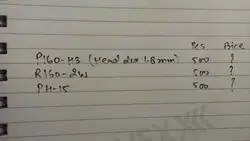 Pcs Price
P160-M3 (Head dia 1.8mm) 500 ?
R160-2W 500 ?
PH-15 500 ?